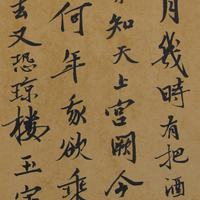 月幾時有把酒
知天上宮闕今
何年我欲乘
去又恐瓊樓玉宇